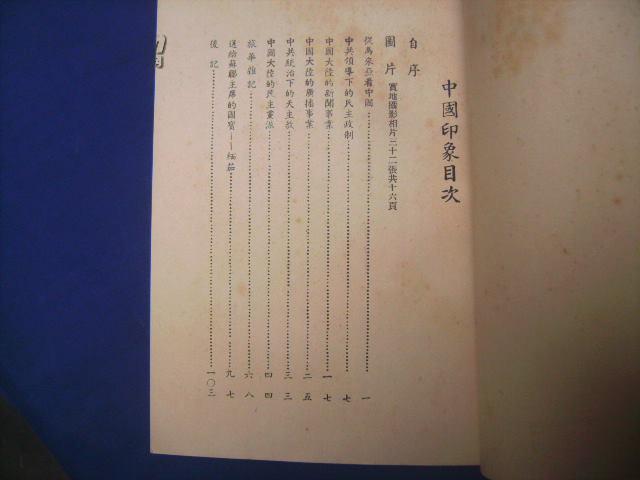 中國印象目次
自序
圖片 實地攝影相片三十二張共十六頁
從馬來亞看中國……一
中共領導下的民主政制……七
中國大陸的新聞事業……一七
中國大陸的廣播事業……二五
中共統治下的天主教……三三
中國大陸的民主黨派……四四
旅華雜記……六八
送給蘇聯主席的國寶——緬茄……九七
後記……一〇三